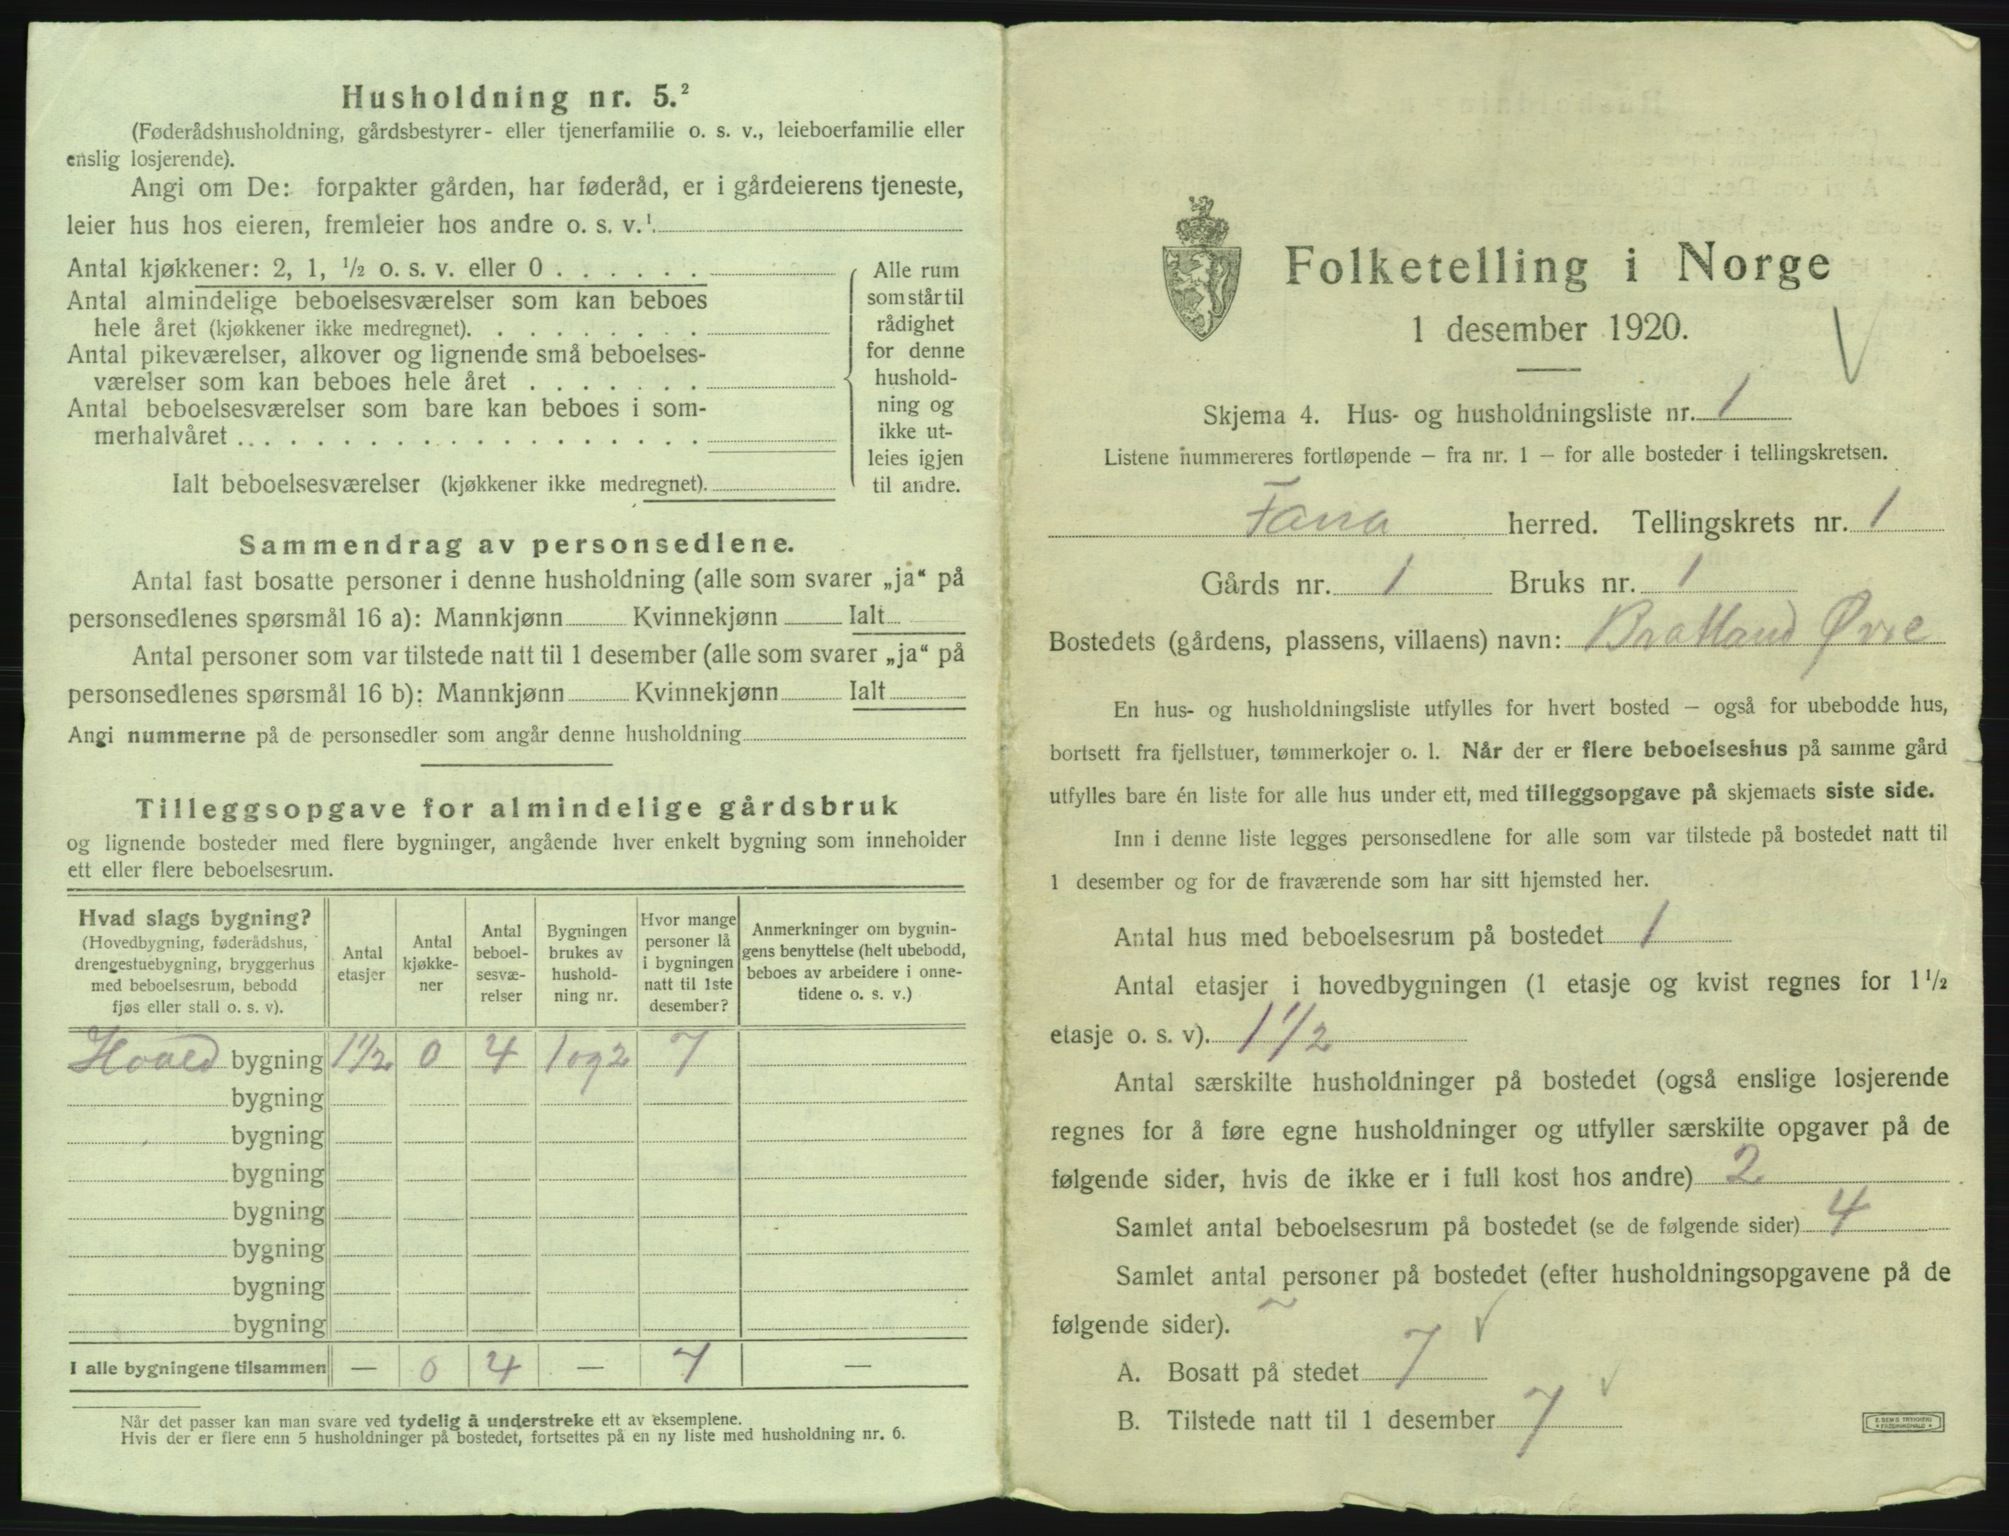 Husholdning nr. 5.²
(Føderådshusholdning, gårdsbestyrer- eller tjenerfamilie o. s. v., leieboerfamilie eller
enslig losjerende).
Angi om De: forpakter gården, har føderåd, er i gårdeierens tjeneste,
leier hus hos eieren, fremleier hos andre o. s. v.¹
Antal kjøkkener: 2, 1, ½ o. s. v. eller 0
Antal almindelige beboelsesværelser som kan beboes
hele året (kjøkkener ikke medregnet).
Antal pikeværelser, alkover og lignende små beboelses-
værelser som kan beboes hele året
Antal beboelsesværelser som bare kan beboes i som-
merhalvåret
Ialt beboelsesværelser (kjøkkener ikke medregnet).
Alle rum
som står til
rådighet
for denne
hushold-
ning og
ikke ut-
leies igjen
til andre.
Sammendrag av personsedlene.
Antal fast bosatte personer i denne husholdning (alle som svarer „ja“ på
personsedlenes spørsmål 16 a): Mannkjønn Kvinnekjønn Ialt
Antal personer som var tilstede natt til 1 desember (alle som svarer „ja“ på
personsedlenes spørsmål 16 b): Mannkjønn Kvinnekjønn Ialt
Angi nummerne på de personsedler som angår denne husholdning
Tilleggsopgave for almindelige gårdsbruk
og lignende bosteder med flere bygninger, angående hver enkelt bygning som inneholder
ett eller flere beboelsesrum.
Hvad slags bygning?
(Hovedbygning, føderådshus,
drengestuebygning, bryggerhus
med beboelsesrum, bebodd
fjøs eller stall o. s. v).
Antal
etasjer
Antal
kjøkke-
ner
Antal
beboel-
sesvæ-
relser
Bygningen
brukes av
hushold-
ning nr.
Hvor mange
personer lå
i bygningen
natt til 1ste
desember?
Anmerkninger om bygnin-
gens benyttelse (helt ubebodd,
beboes av arbeidere i onne-
tidene o. s. v.)
Hoved bygning 1½ 0 4 1 og 2 7
bygning
bygning
bygning
bygning
bygning
bygning
bygning
I alle bygningene tilsammen — 0 4 — 7 —
Når det passer kan man svare ved tydelig å understreke ett av eksemplene.
Hvis der er flere enn 5 husholdninger på bostedet, fortsettes på en ny liste med husholdning nr. 6.
Folketelling i Norge
1 desember 1920.
Skjema 4. Hus- og husholdningsliste nr. 1
Listene nummereres fortløpende – fra nr. 1 – for alle bosteder i tellingskretsen.
Fana herred. Tellingskrets nr. 1
Gårds nr. 1 Bruks nr. 1
Bostedets (gårdens, plassens, villaens) navn: Bratland Øvre
En hus- og husholdningsliste utfylles for hvert bosted – også for ubebodde hus,
bortsett fra fjellstuer, tømmerkojer o. l. Når der er flere beboelseshus på samme gård
utfylles bare én liste for alle hus under ett, med tilleggsopgave på skjemaets siste side.
Inn i denne liste legges personsedlene for alle som var tilstede på bostedet natt til
1 desember og for de fraværende som har sitt hjemsted her.
Antal hus med beboelsesrum på bostedet 1
Antal etasjer i hovedbygningen (1 etasje og kvist regnes for 1½
etasje o. s. v). 1½
Antal særskilte husholdninger på bostedet (også enslige losjerende
regnes for å føre egne husholdninger og utfyller særskilte opgaver på de
følgende sider, hvis de ikke er i full kost hos andre) 2
Samlet antal beboelsesrum på bostedet (se de følgende sider) 4
Samlet antal personer på bostedet (efter husholdningsopgavene på de
følgende sider).
A. Bosatt på stedet 7
B. Tilstede natt til 1 desember 7